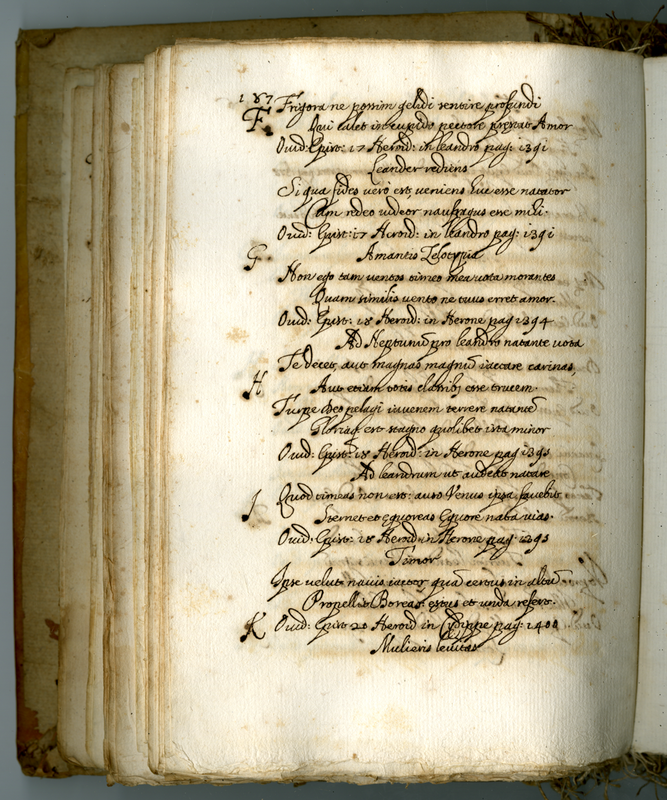 187
F Frigora ne possim gelidi sentire profundi
Qui calet in cupido pectore prestat Amor
Ouid: Epist: 17 Heroid: in leandro pag: 1391
Leander rediens
Si qua fides vero est, veniens huc esse natator
Cum redeo uideor naufragus esse mihi.
Ouid: Epist: 17 Heroid: in leandro pag: 1391
G Amantis Zelotypia
Non ego tam ventos timeo mea uota morantes
Quam similis vento ne tuus erret amor.
Ouid: Epist: 18 Heroid: in Herone pag 1394
Ad Neptunū pro leandro natante uota
Te decet, aut magnas magnū iactare carinas,
H Aut etiam totis classibꝫ esse trucem
Turpe deo pelagi iuuenem terrere natantē
Gloriaqꝫ est stagno quolibet ista minor
Ouid: Epist: 18 Heroid: in Herone pag 1395
Ad leandrum ut audeat natare
I Quod timeas non est: auso Venus ipsa fauebit
Sternet et ęquoreas ęquore nata uias.
Ouid: Epist: 18 Heroid: in Herone pag: 1395
Timor
Ipse velut nauis iactor quā certus in altū
Propellit Boreas: estus et unda refert.
K Ouid: Epist 20 Heroid in Cydippe pag: 1400
Mulieris leuitas